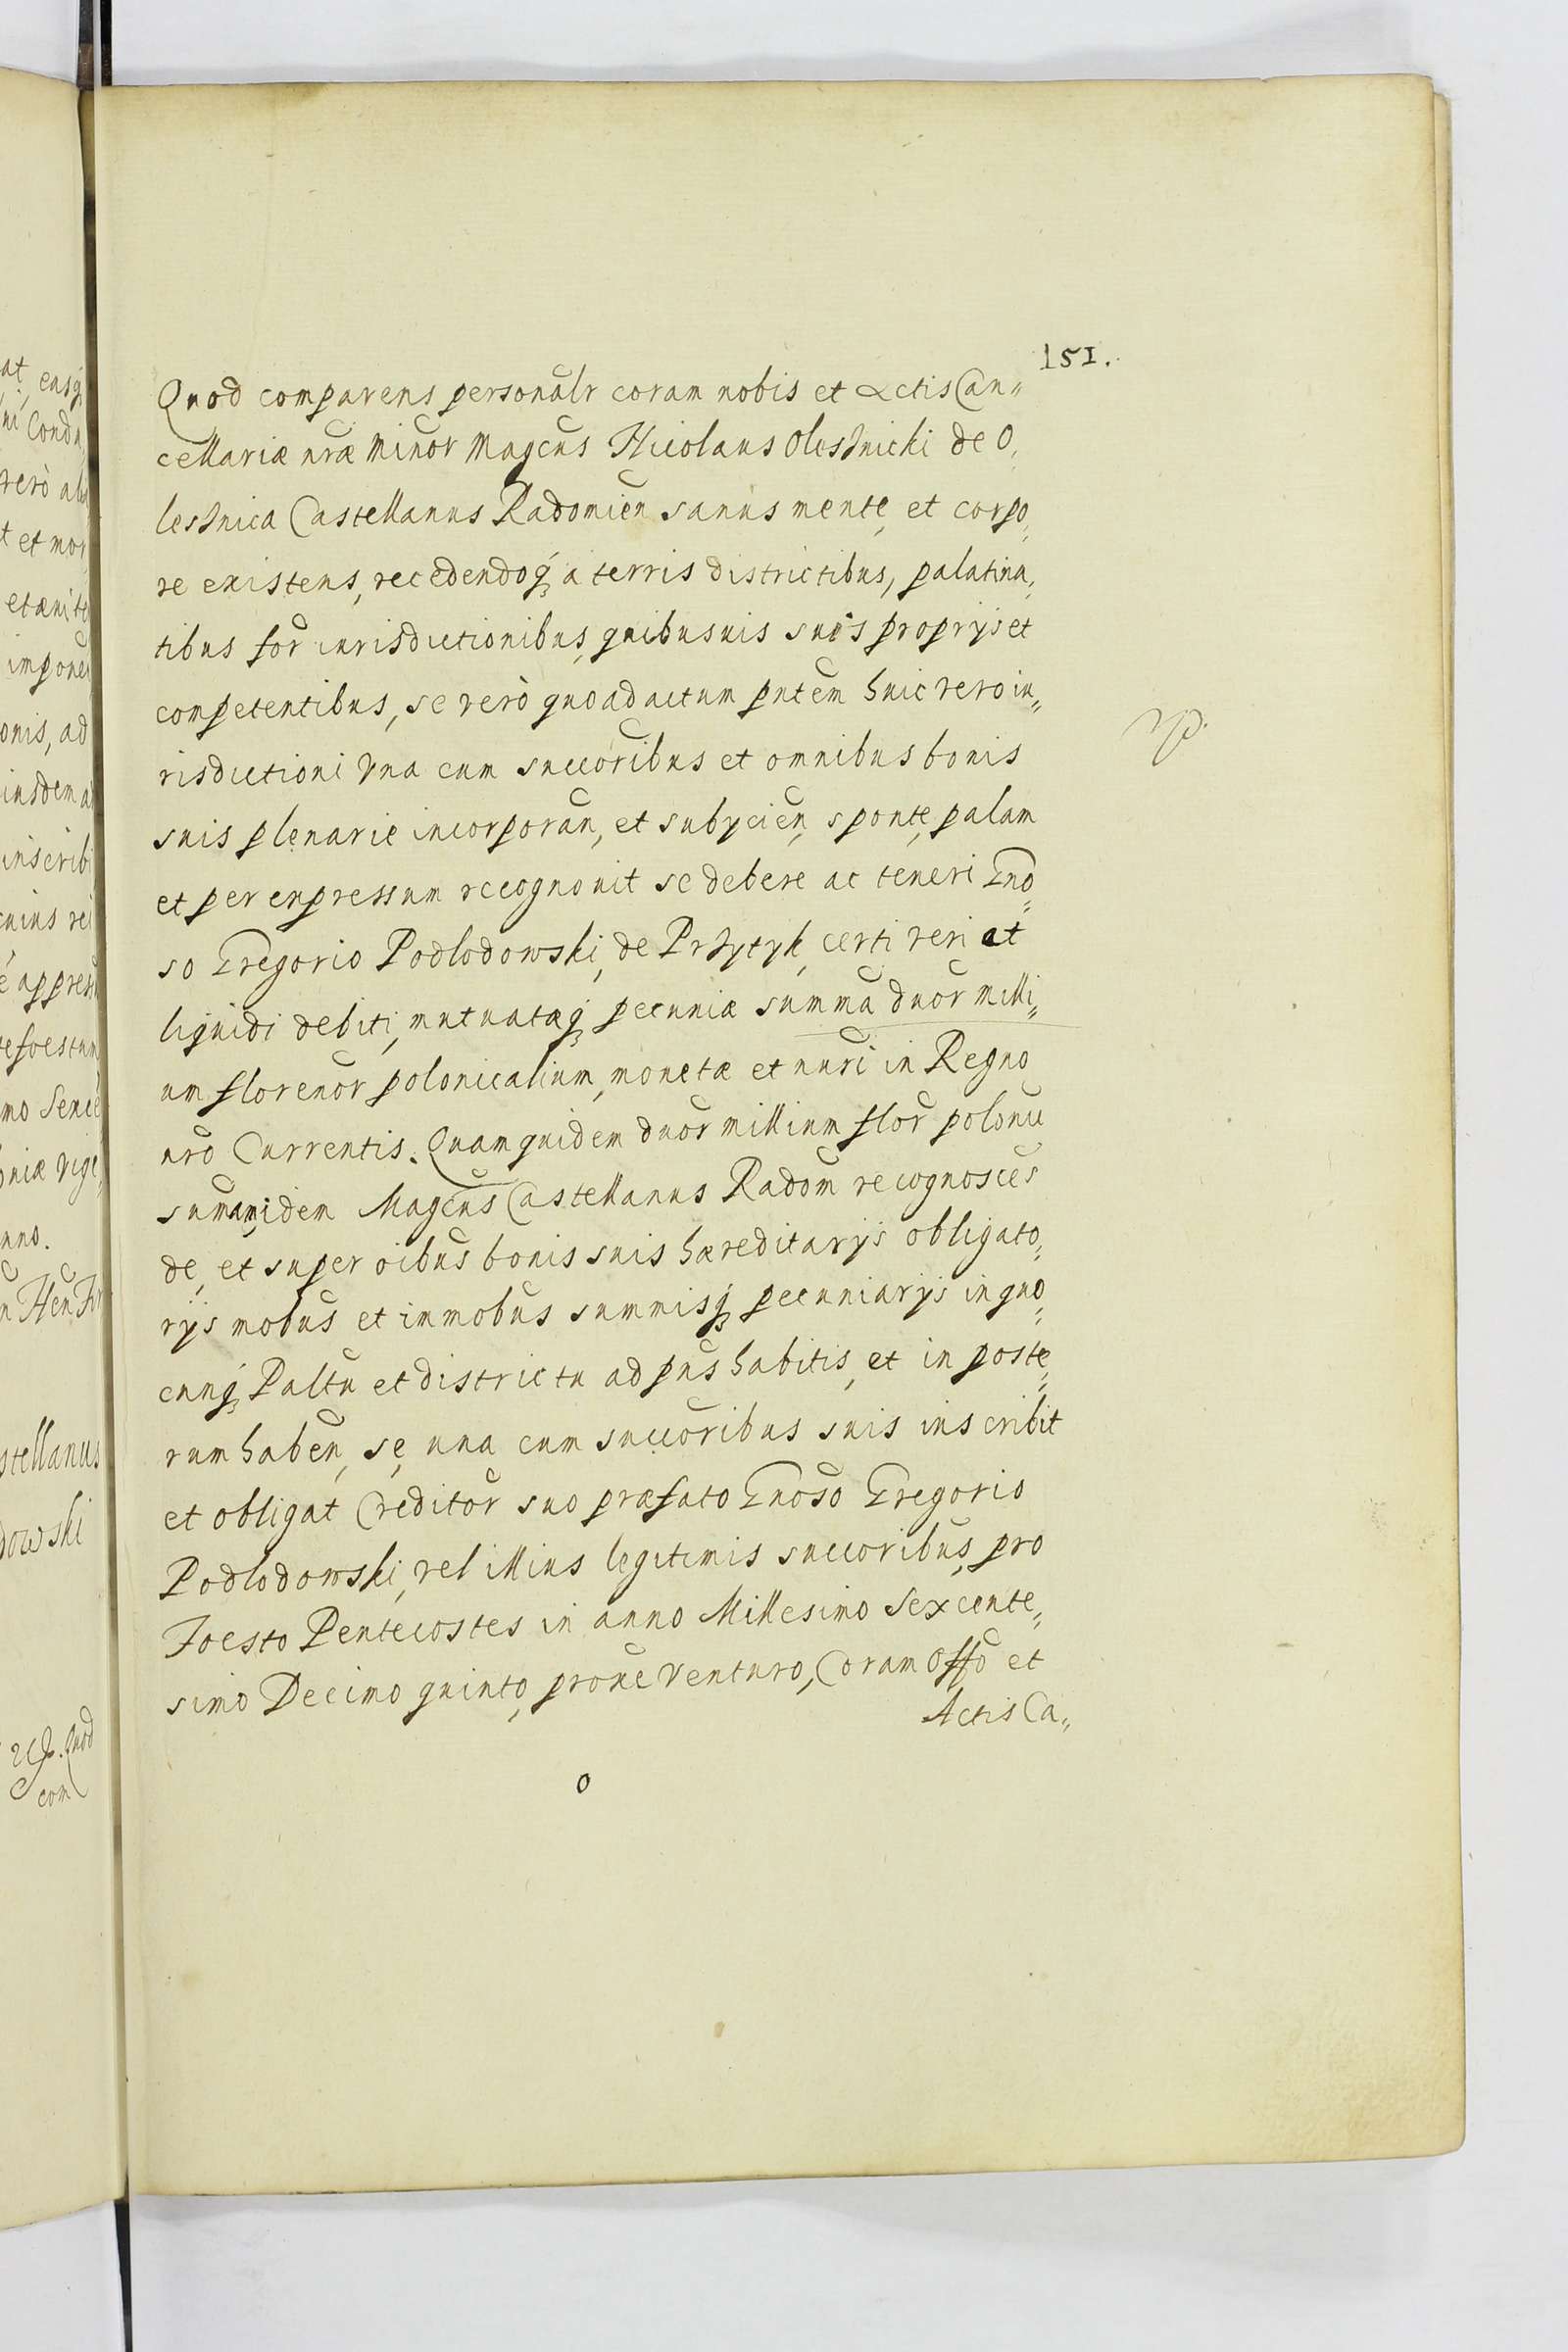 151.
Quod comparens personalr coram nobis et Actis Can„
cellariæ nræ Minor Magcus Nicolaus Olesznicki de O„
lesznica Castellanus Radomien sanus mente, et corpo„
re existens, recedendoq; a terris districtibus, palatina„
tibus for iurisdictionibus, quibusuis suis proprijs et
competentibus, se verò quo ad actum pntem huic vero iu„
risdictioni vna cum succoribus et omnibus bonis
suis plenarie incorporan, et subycien, sponte, palam
et per expressum recognouit se debere ac teneri Gno„
so Gregorio Podlodowski, de Przytyk, certi veri et
liquidi debiti, mutuatæq; pecuniæ summa duor milli„
um florenor polonicalium, monetæ et nuri in Regno
nro Currentis. Quam quidem duor millium flor polonic
sumam, idem Magcus Castellanus Radom recognosces
de, et super oibus bonis suis hæreditarijs obligato„
rijs mobus et immobus summisq; pecuniarijs in quo„
cunq; Paltu et districtu ad pns habitis, et in poste„
rum haben, se, una cum succoribus suis inscribit
et obligat Creditor suo præfato Gnoso Gregorio
Podlodowski, vel illius legitimis succoribus, pro
Foesto Pentecostes in anno Millesimo Sexcente„
simo Decimo quinto, proxe venturo, Coram Offo et
Actis Ca„
o